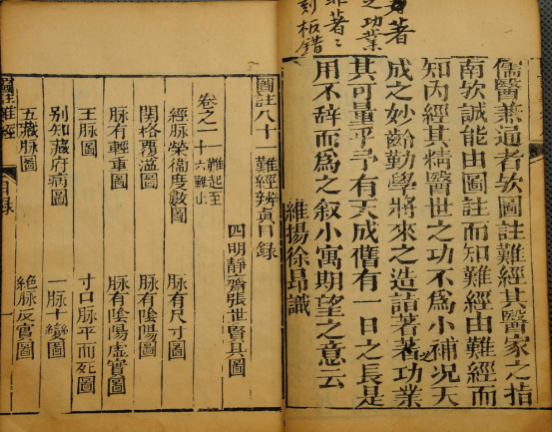 著
之功業
著
刻板錯
儒醫兼通者欤圖註難經其醫家之指
南欤誠能由圖註而知難經由難經而
知内經其精醫世之功不為小補况天
成之妙齡勤學將來之造詣著著功業
之
其可量乎予有天成偕有一日之長是
用不辞而為之叙小寓期望之意云
維揚徐昂識
圖註八十一難經辨真目錄
四明靜齋張世賢具圖
卷之一 一難起至十六難止
經脉榮衛度數圖 脉有尺寸圖
関格覆溢圖 脉有陰陽圖
脉有輕重圖 脉有陰陽虛實圖
王脉圖 寸口脉平而死圖
别知藏府病圖 一脉十變圖
五藏脉圖 絶脉反實圖
圖註難經 目錄 一